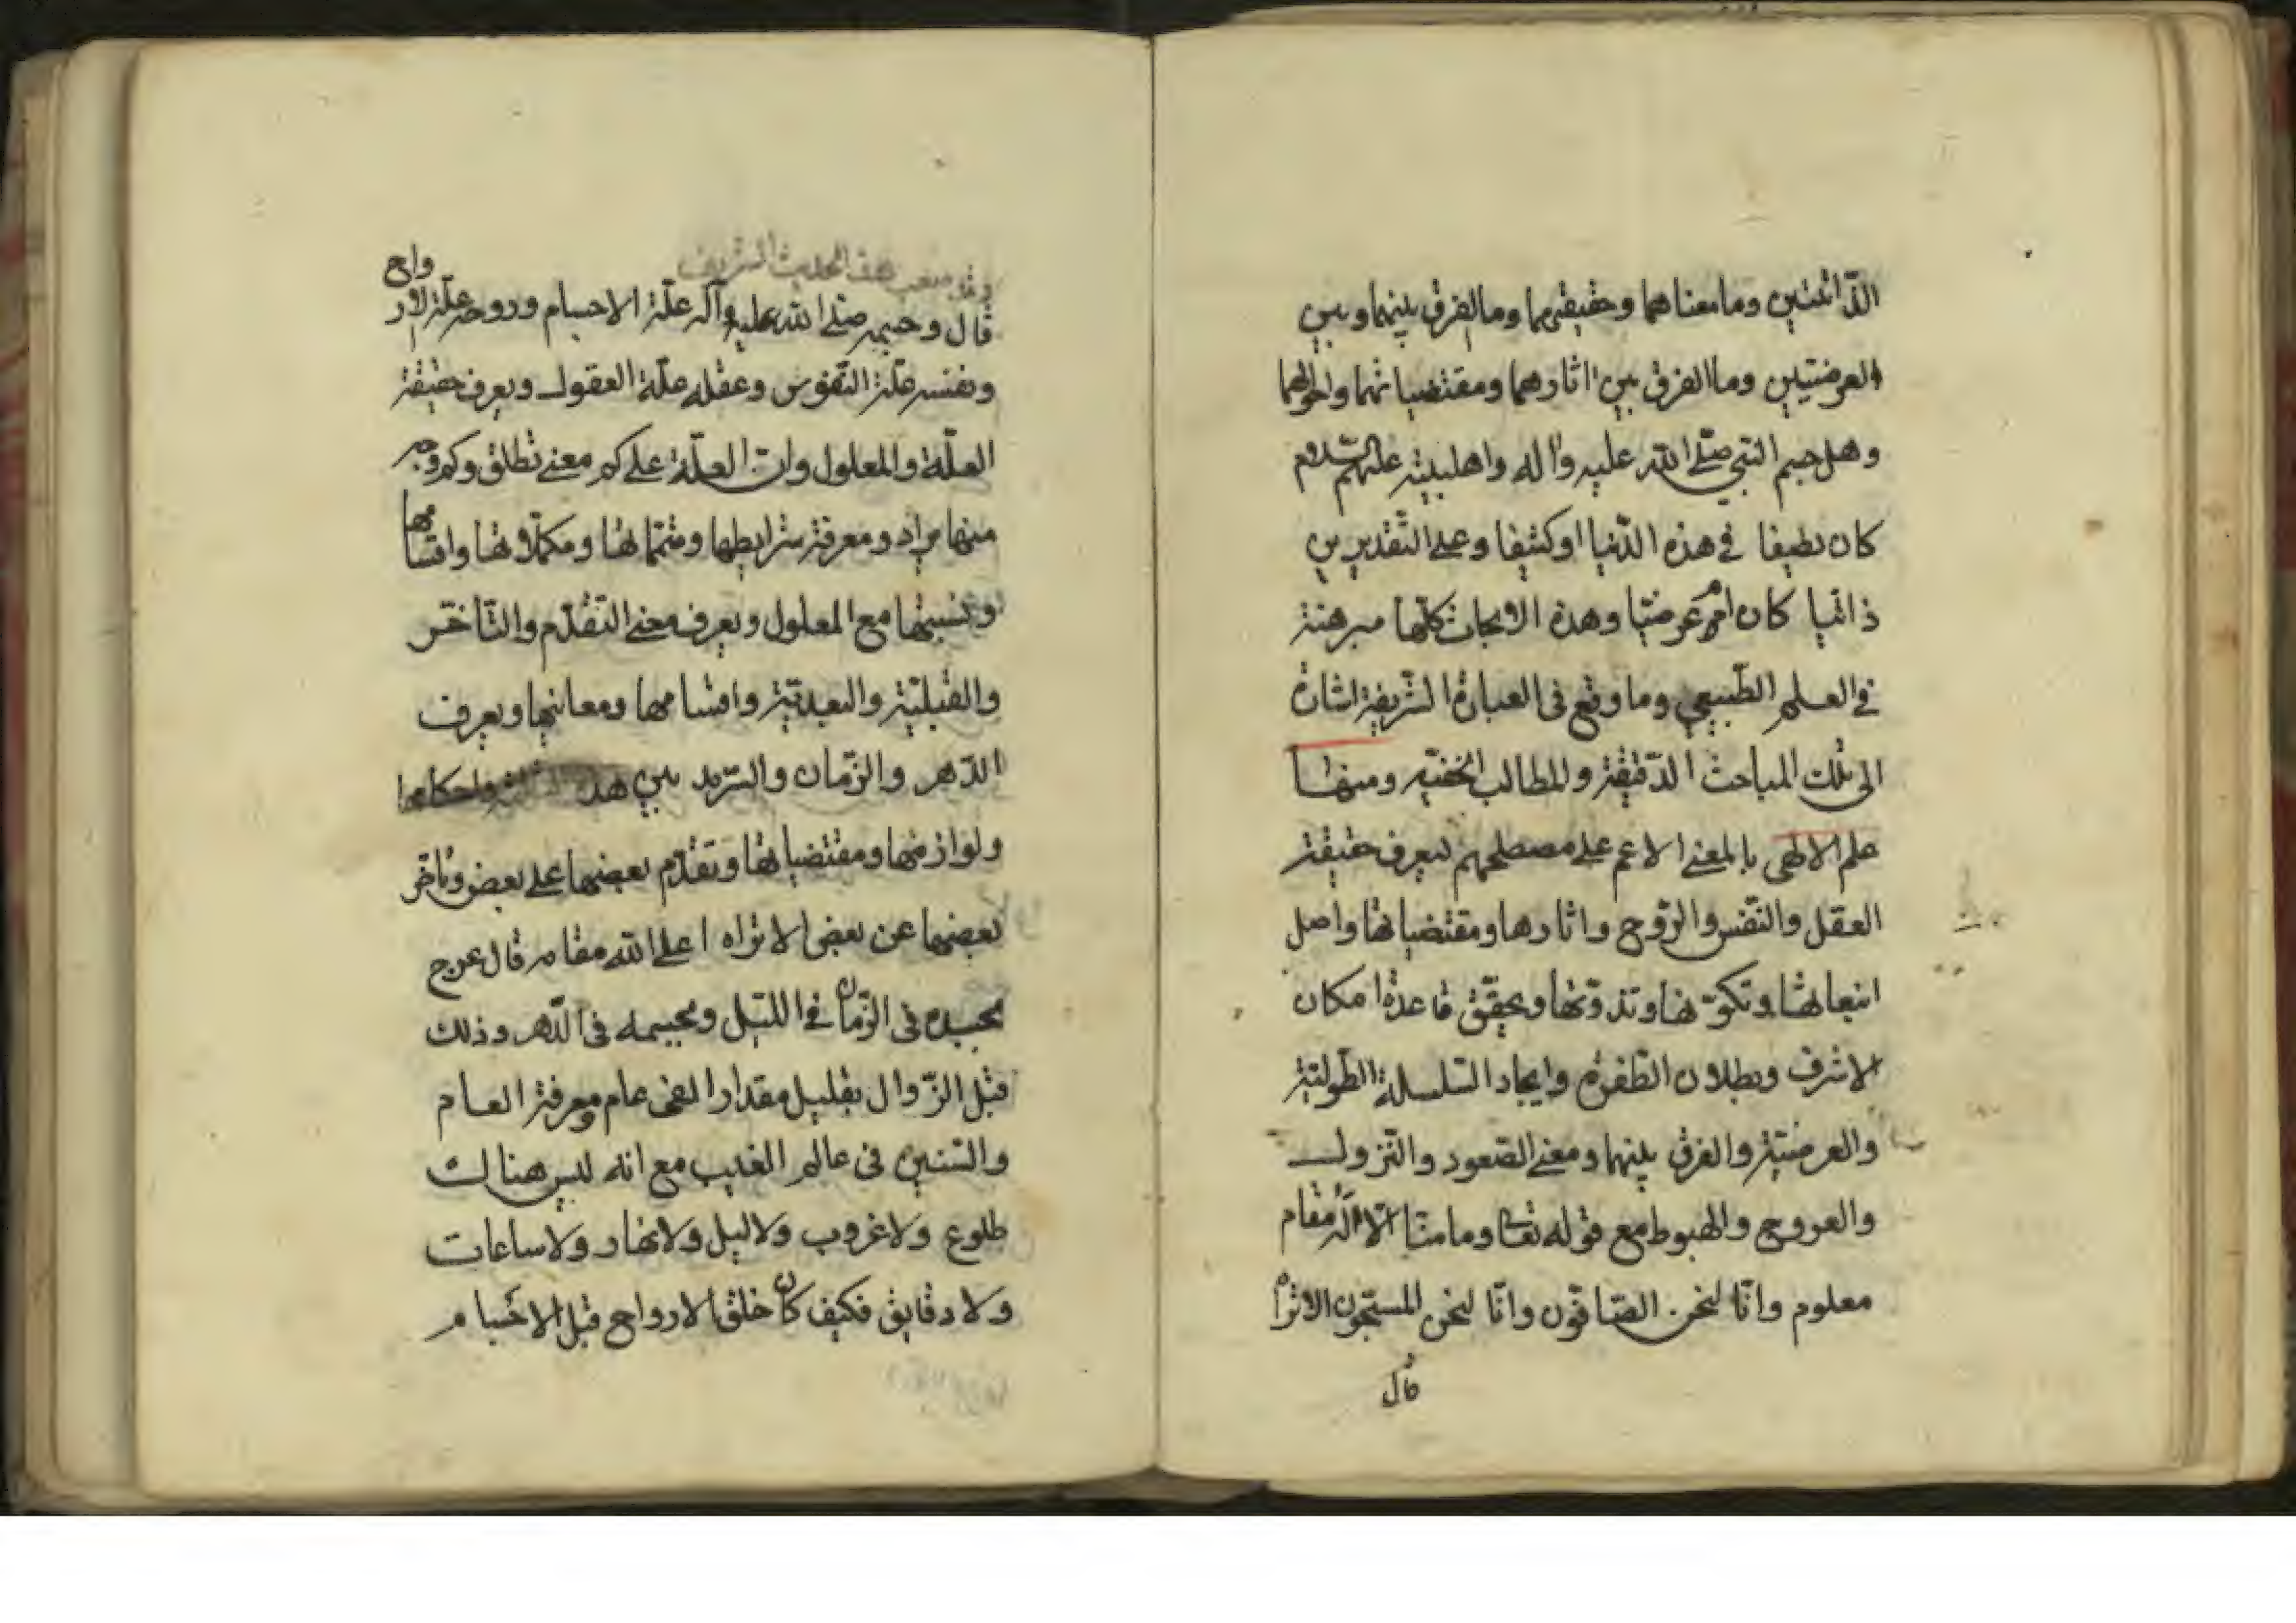 الذّاتيتين وما معناهما وحقيقتهما وما الفرق بينهما وبين
العرضيتين وما الفرق بين اثارهما ومقتضياتهما واحوالهما
وهل جسم النبي صلّى اللّه عليه واله واهلبيته عليهم السّلام
كان لطيفا في هذه الدّنيا او كثيفا وعلى التّقديرين
ذاتيا كان ام عرضيّا وهذه الابحاث كلّها مبرهنة
في العلم الطّبيعي وما وقع في العبارة الشّريفة اشارة
الى تلك المباحث الدّقيقة والمطالب الخفيّه ومنها
علم الالهي بالمعنى الاعم على مصطلحهم ليعرف حقيقة
العقل والنّفس والرّوح واثارها ومقتضياتها واصل
انبعاثها وتكوّنها وتذوّتها ويحقّق قاعدة امكان
الاشرف وبطلان الطّفرة وايجاد السّلسلة الطّوليّة
والعرضيّة والفرق بينهما ومعنى الصّعود والنّزول
والعروج والهبوط مع قوله تعا وما منّا الّا له مقام
معلوم وانّا لنحن الصّافّون وانّا لنحن المسبّحون الا تراه
قال
الحديث الشريف
قال وجسمه صلّى اللّه عليه وآله علّة الاجسام وروحه علّة الارواح
ونفسه علّة النّفوس وعقله علّة العقول ويعرف حقيقة
العلّة والمعلول وان العلّة على كم معنى تطلق وكم وجه
منها يراد ومعرفة شرايطها ومتمّماتها ومكمّلاتها واقسامها
ونسبتها مع المعلول ويعرف معنى التّقدّم والتّأخّر
والقبليّة والبعديّة واقسامها ومعانيها ويعرف
الدّهر والزّمان والسّرمد بين هذه واحكامها
ولوازمها ومقتضياتها وتقدّم بعضها على بعض وتأخّر
بعضها عن بعض الا تراه اعلى اللّه مقامه قال عرج
بجسده في الزّمان في اللّيل وبجسمه في الدّهر وذلك
قبل الزّوال بقليل مقدار الفى عام ومعرفة العام
والسّنين في عالم الغيب مع انه ليس هنالك
طلوع ولا غروب ولا ليل ولا نهار ولا ساعات
ولا دقايق فكيف كان خلق الارواح قبل الاجسام